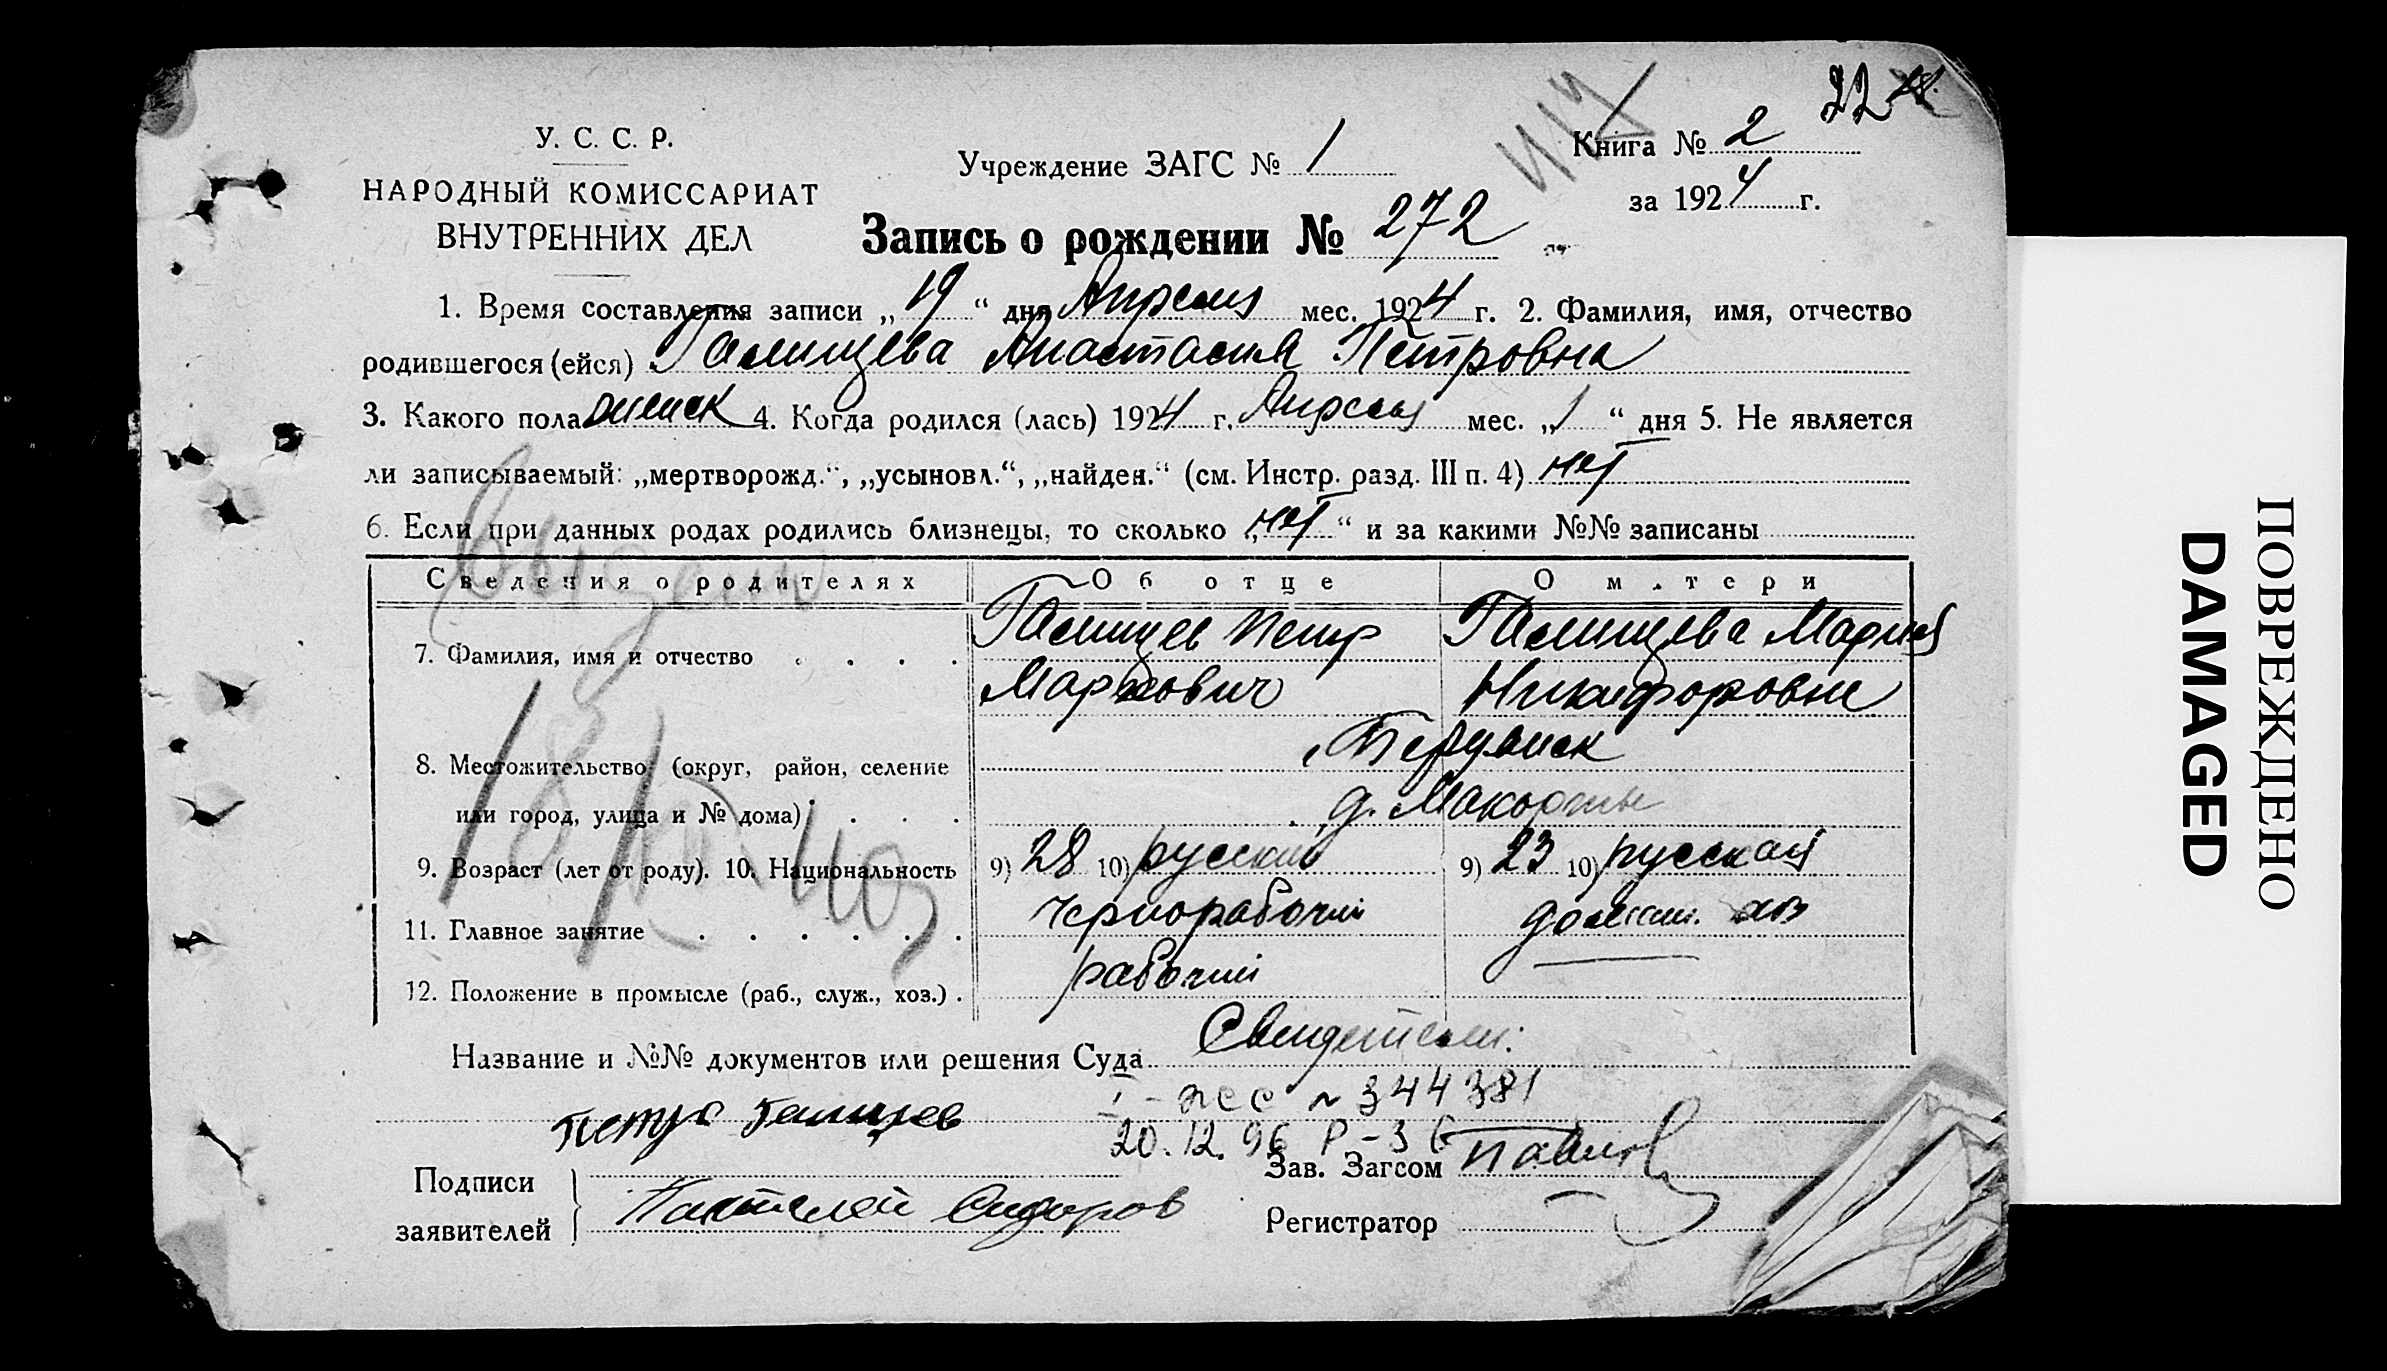 22
У. С. С. Р.
НАРОДНЫЙ КОМИССАРИАТ
ВНУТРЕННИХ ДЕЛ
Учреждение ЗАГС № 1
Книга № 2
за 1924 г.
Запись о рождении № 272
1. Время составления записи „19“ дня Апреля мес. 1924 г. 2. Фамилия, имя, отчество
родившегося (ейся) Галищева Анастасия Петровна
3. Какого пола женск 4. Когда родился (лась) 1924 г. Апреля мес. „1“ дня 5. Не является
ли записываемый: „мертворожд.“, „усыновл.“, „найден.“ (см. Инстр. разд. III п. 4) нет
6. Если при данных родах родились близнецы, то сколько „нет“ и за какими №№ записаны
Сведения о родителях Об отце О м.тери
7. Фамилия, имя и отчество . . . . Галищев Петр Галищева Мария
Маркович Никифоровна
8. Местожительство (округ, район, селение Бердянск
или город, улица и № дома) . . . д.
9. Возраст (лет от роду). 10. Национальность 9) 28 10) русский 9) 23 10) русская
11. Главное занятие . . . . . . чернорабочий домаш. хоз
12. Положение в промысле (раб., служ., хоз.) . рабочий
Название и №№ документов или решения Суда Свидетели:
№ 344381
Петр Галищев
20.12.96
Подписи
заявителей
Пантелей Сидоров
Зав. Загсом Павлов
Регистратор
ПОВРЕЖДЕНО
DAMAGED